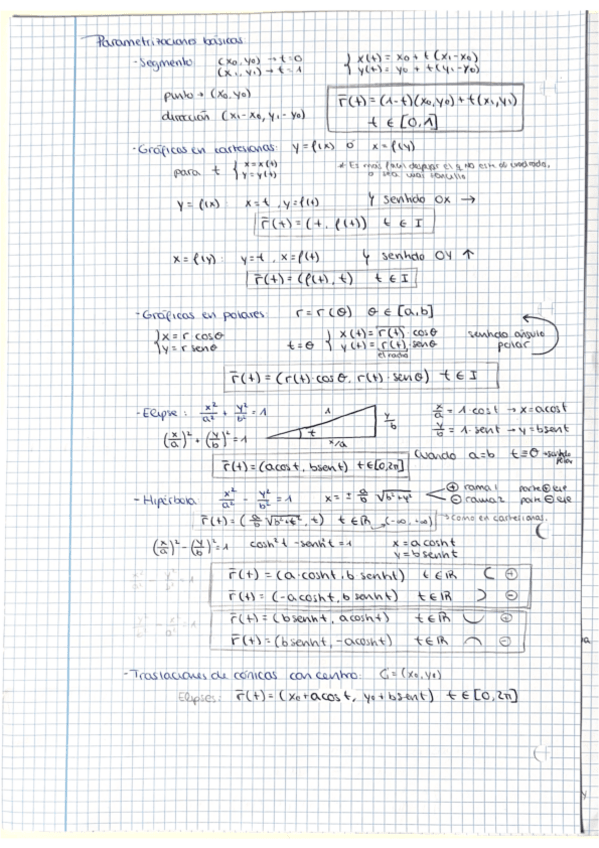 Parametrizaciones básicas
- Segmento (x₀, y₀) → t=0 { x(t) = x₀ + t (x₁-x₀)
(x₁, y₁) → t=1 { y(t) = y₀ + t (y₁-y₀)
punto → (x₀, y₀)
dirección (x₁-x₀, y₁-y₀)
r̄(t) = (1-t)(x₀,y₀) + t(x₁,y₁)
t ∈ [0,1]
- Gráficas en cartesianas: y=f(x) o x=f(y)
para t { x=x(t)
y=y(t)
* Es más fácil despejar el q no esté al cuadrado,
o sea más sencillo
y=f(x) x=t, y=f(t) sentido OX →
r̄(t) = (t, f(t)) t ∈ I
x=f(y): y=t, x=f(t) sentido OY ↑
r̄(t) = (f(t), t) t ∈ I
- Gráficas en polares: r=r(θ) θ ∈ [a,b]
{ x=r cosθ t=θ { x(t)=r(t)·cosθ sentido ángulo
{ y=r senθ { y(t)=r(t)·senθ polar
el radio
r̄(t) = (r(t)·cosθ, r(t)·senθ) t ∈ I
- Elipse: x²/a² + y²/b² = 1 1 y/b x/a = 1·cost → x=acost
(x/a)² + (y/b)² = 1 t x/a y/b = 1·sent → y=bsent
r̄(t) = (acost, bsent) t∈[0,2π] Cuando a=b t=θ → sentido
polar
- Hipérbola x²/a² - y²/b² = 1 x = ± a/b √b²+y² ⊕ rama 1 parte ⊕ eje
⊖ rama 2 parte ⊖ eje
r̄(t) = (a/b √b²+t², t) t∈ℝ → (-∞, +∞) → como en cartesianas.
(x/a)² - (y/b)² = 1 cosh²t - senh²t = 1 x=a cosht
y=b senht
r̄(t) = (a·cosht, b senht) t∈ℝ ⊕
r̄(t) = (-a cosht, b senht) t∈ℝ ⊖
r̄(t) = (b senht, a cosht) t∈ℝ ⊕
r̄(t) = (b senht, -a cosht) t∈ℝ ⊖
- Traslaciones de cónicas con centro: C=(x₀, y₀)
Elipses: r̄(t) = (x₀+a cost, y₀+b sent) t∈[0,2π]